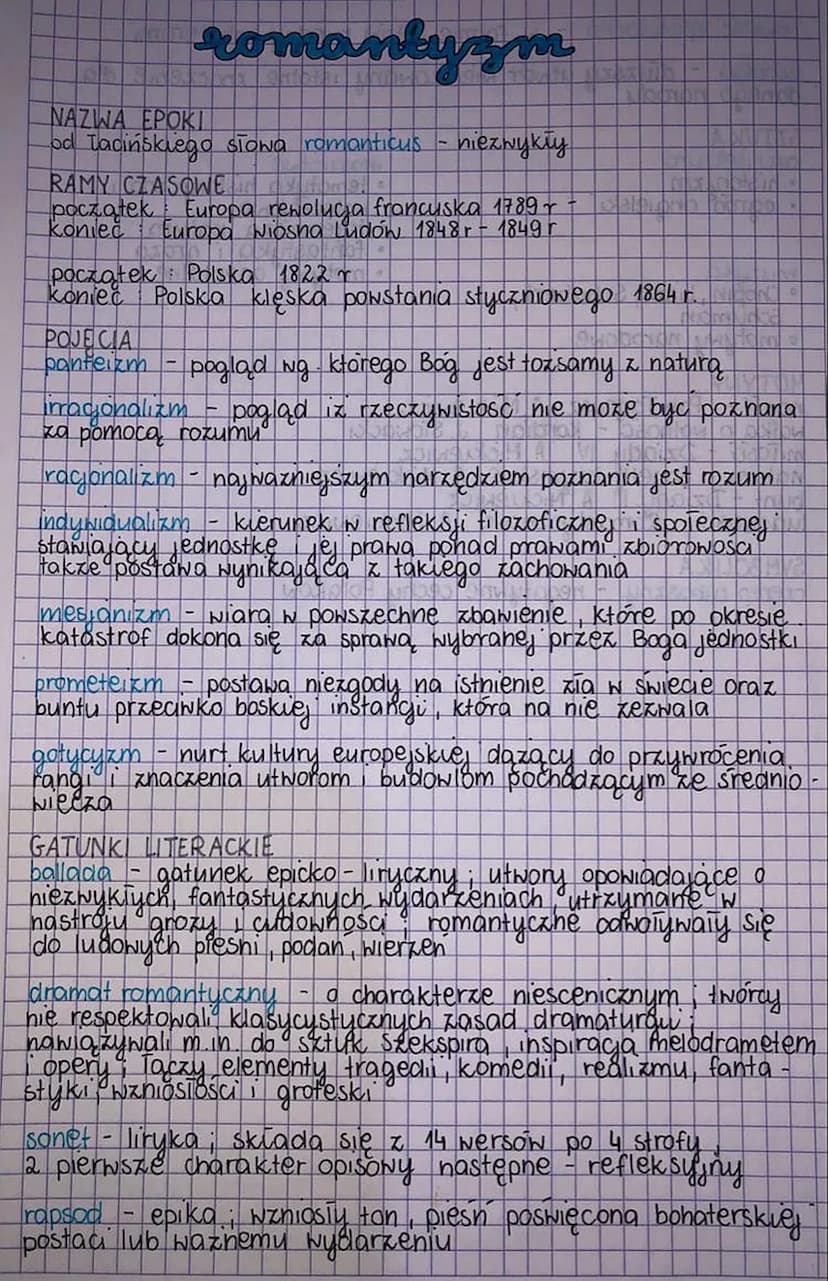 romantyzm
NAZWA EPOKI
od łacińskiego słowa romanticus - niezwykły
RAMY CZASOWE
początek : Europa rewolucja francuska 1789 r -
koniec : Europa wiosna Ludów 1848 r - 1849 r
początek : Polska 1822 r
koniec : Polska klęska powstania styczniowego 1864 r.
POJĘCIA
panteizm - pogląd wg. którego Bóg jest tożsamy z naturą
irracjonalizm - pogląd iż rzeczywistość nie może być poznana
za pomocą rozumu
racjonalizm - najważniejszym narzędziem poznania jest rozum
indywidualizm - kierunek w refleksji filozoficznej i społecznej
stawiający jednostkę i jej prawa ponad prawami zbiorowości
także postawa wynikająca z takiego zachowania
mesjanizm - wiara w powszechne zbawienie, które po okresie
katastrof dokona się za sprawą wybranej przez Boga jednostki
prometeizm - postawa niezgody na istnienie zła w świecie oraz
buntu przeciwko boskiej instancji, która na nie zezwala
gotycyzm - nurt kultury europejskiej dążący do przywrócenia
rangi i znaczenia utworom i budowlom pochodzącym ze średnio-
wiecza
GATUNKI LITERACKIE
ballada - gatunek epicko-liryczny ; utwory opowiadające o
niezwykłych, fantastycznych wydarzeniach, utrzymane w
nastroju grozy i cudowności ; romantyczne odwoływały się
do ludowych pieśni, podań, wierzeń
dramat romantyczny - o charakterze niescenicznym ; twórcy
nie respektowali klasycystycznych zasad dramaturgii ;
nawiązywali m.in. do sztuk Szekspira, inspiracja melodrametem
i opery ; łączy elementy tragedii, komedii, realizmu, fanta-
styki, wzniosłości i groteski
sonet - liryka ; składa się z 14 wersów po 4 strofy,
2 pierwsze charakter opisowy następne - refleksyjny
rapsod - epika ; wzniosły ton, pieśń poświęcona bohaterskiej
postaci lub ważnemu wydarzeniu